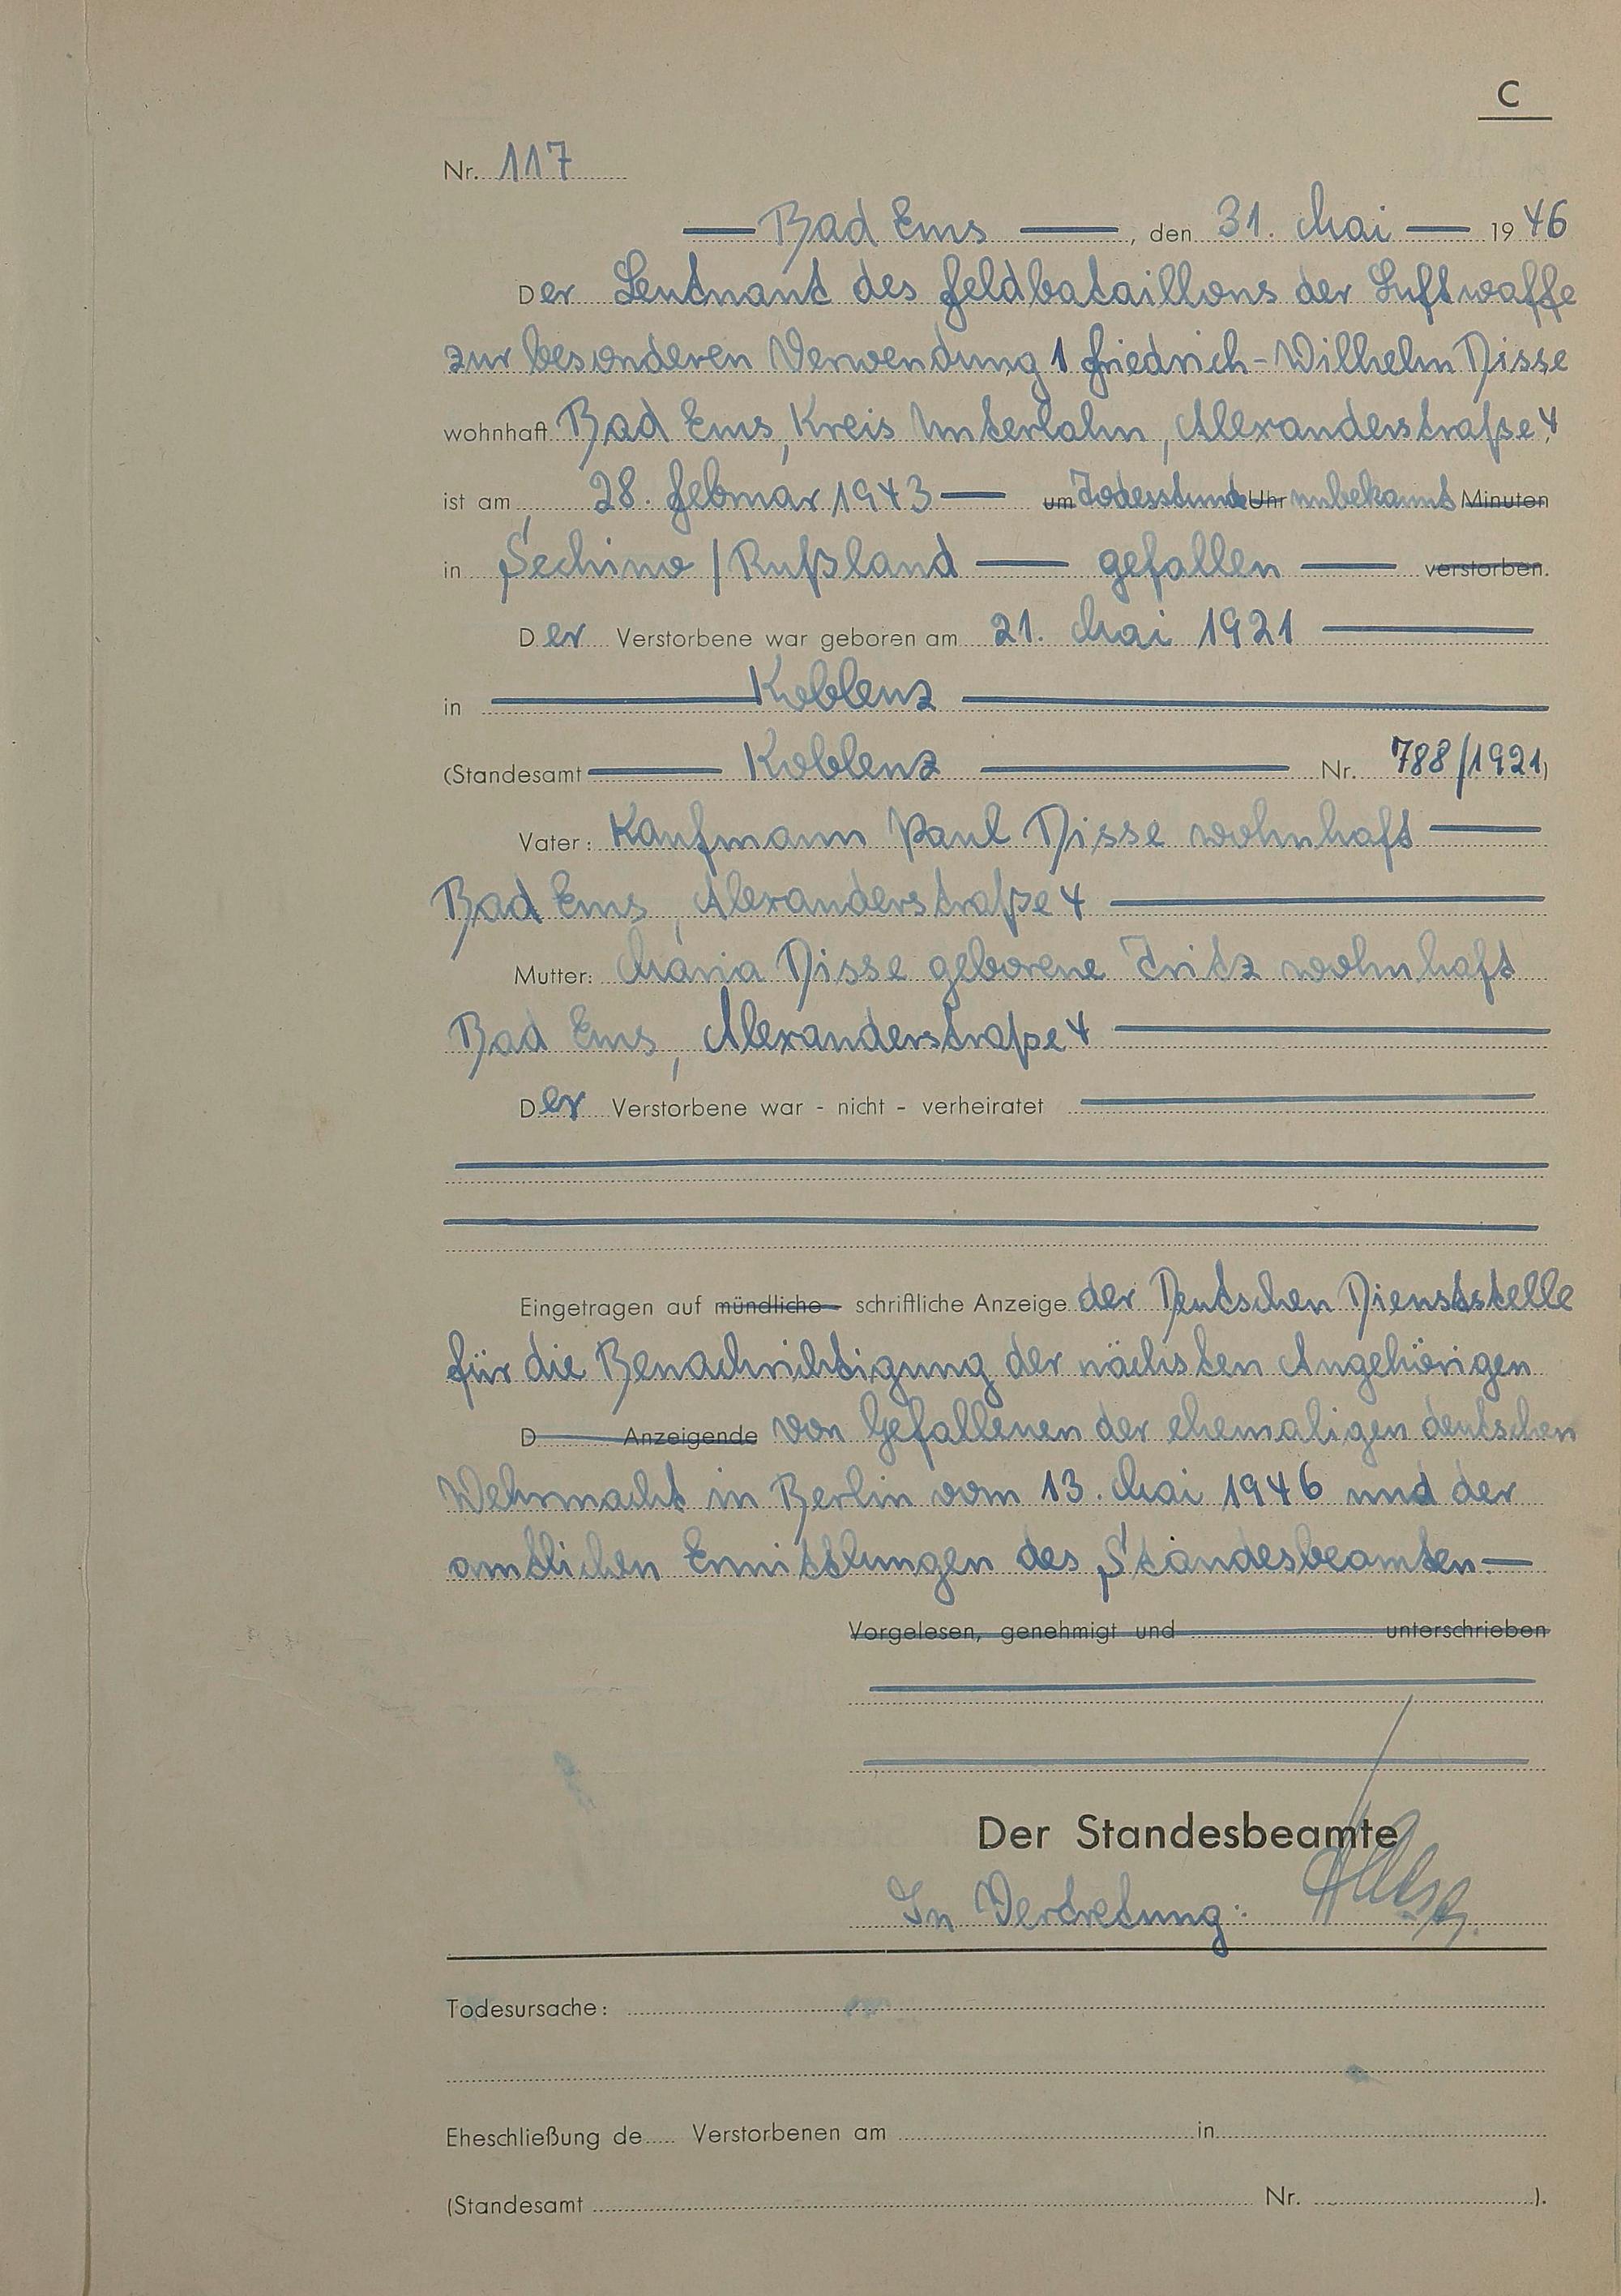 C
Nr. 117
Bad Ems, den 31. Mai 1946
Der Leutnant des Feldbataillons der Luftwaffe
zur besonderen Verwendung 1 Friedrich-Wilhelm Disse
wohnhaft Bad Ems, Kreis Unterlahn, Alexanderstraße 4
ist am 28. Februar 1943 um Todesstunde Uhr unbekannt Minuten
in Sechino / Rußland gefallen verstorben.
Der Verstorbene war geboren am 21. Mai 1921
in Koblenz
(Standesamt Koblenz Nr. 788/1921)
Vater: Kaufmann Paul Disse wohnhaft
Bad Ems, Alexanderstraße 4
Mutter: Maria Disse geborene Fritz wohnhaft
Bad Ems, Alexanderstraße 4
Der Verstorbene war - nicht - verheiratet
Eingetragen auf mündliche schriftliche Anzeige der Deutschen Dienststelle
für die Benachrichtigung der nächsten Angehörigen
D Anzeigende von Gefallenen der ehemaligen deutschen
Wehrmacht in Berlin vom 13. Mai 1946 und der
amtlichen Ermittlungen des Standesbeamten.
Vorgelesen, genehmigt und unterschrieben
Der Standesbeamte
In Vertretung:
Todesursache:
Eheschließung de Verstorbenen am in
(Standesamt Nr. ).